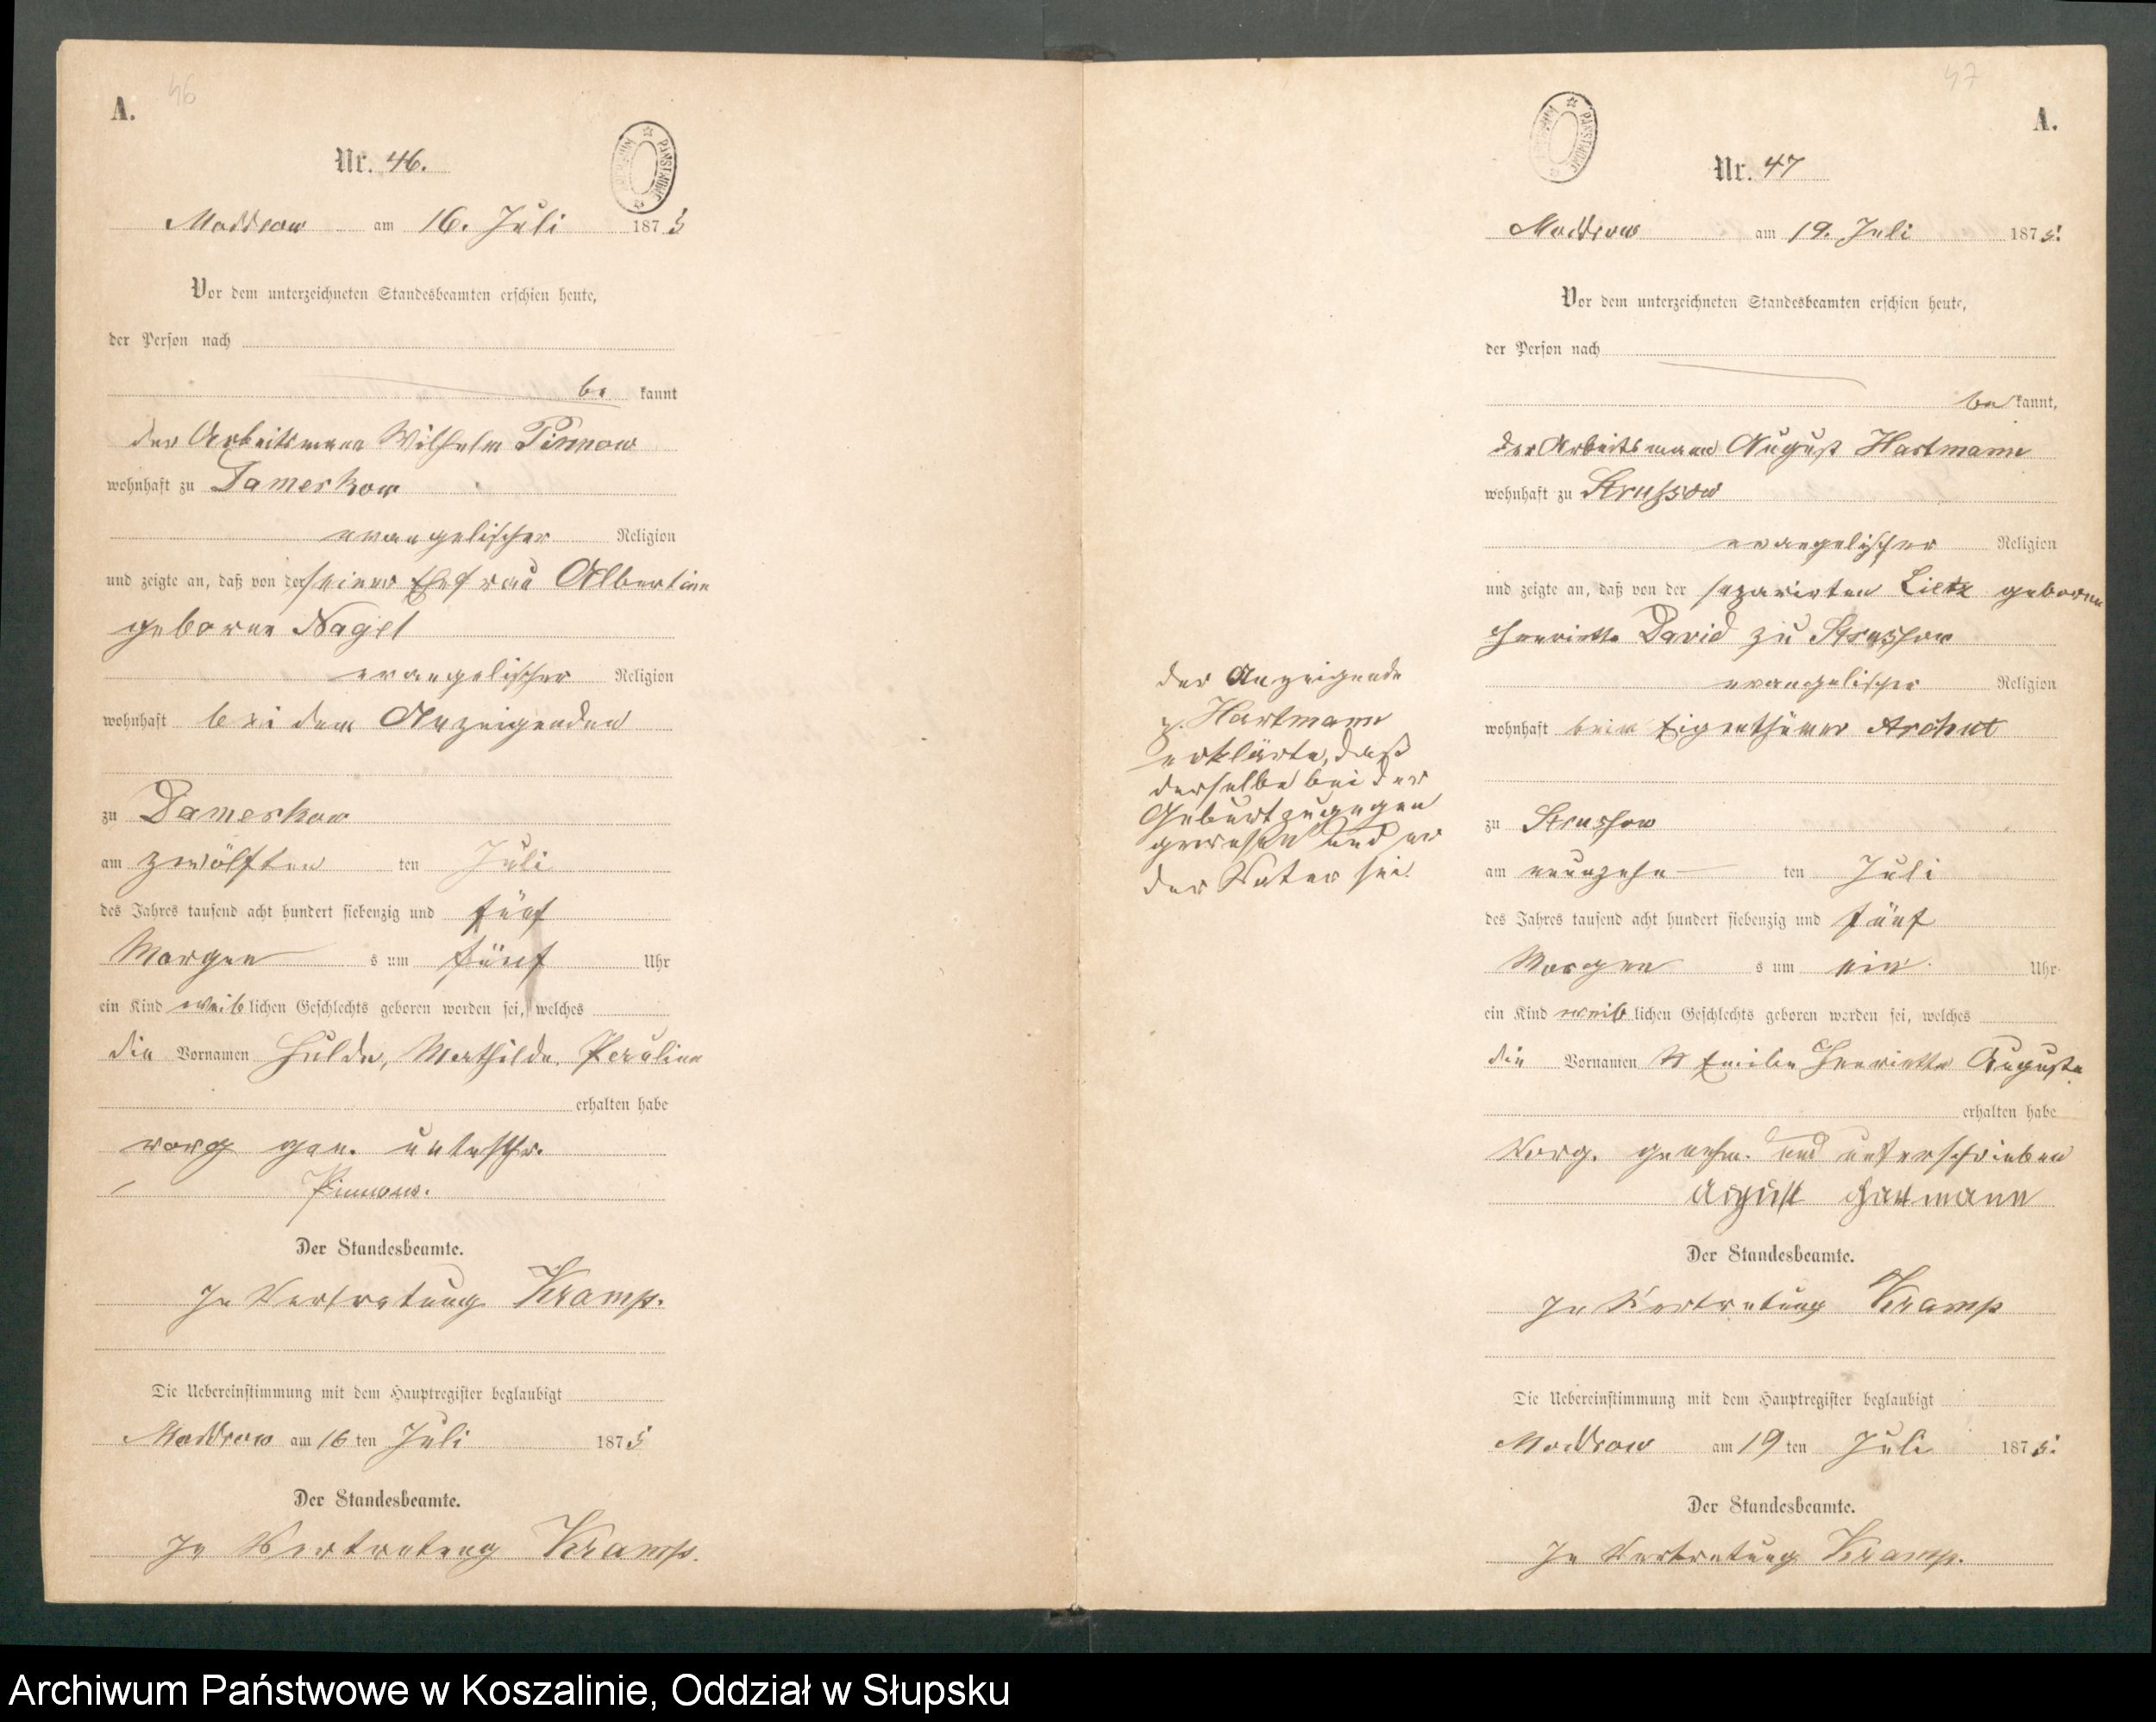 46
A.
Nr. 46.
Moddrow am 16. Juli 1875
Vor dem unterzeichneten Standesbeamten erschien heute,
der Person nach
be kannt
der Arbeitsmann Wilhelm Pinnow
wohnhaft zu Dameskow
evangelischer Religion
und zeigte an, daß von der seiner Ehefrau Albertine
geborne Nagel
evangelischer Religion
wohnhaft bei dem Anzeigenden
zu Dameskow
am zwölften ten Juli
des Jahres tausend acht hundert siebenzig und fünf
Morgen s um fünf Uhr
ein Kind weiblichen Geschlechts geboren worden sei, welches
die Vornamen Hulde, Mathilde, Pauline
erhalten habe
vorg gen. unterschr.
Pinnow.
Der Standesbeamte.
In Vertretung Kramp.
Die Uebereinstimmung mit dem Hauptregister beglaubigt
Moddrow am 16 ten Juli 1875
Der Standesbeamte.
In Vertretung Kramp.
47
A.
PAŃSTWOWE
Nr. 47
Moddrow am 19. Juli 1875.
Vor dem unterzeichneten Standesbeamten erschien heute,
der Person nach
be kannt,
der Arbeitsmann August Hartmann
wohnhaft zu Strussow
evangelischer Religion
und zeigte an, daß von der separirten Lietz geborne
Henriette David zu Strussow
evangelischer Religion
wohnhaft beim Eigenthümer Archut
zu Strussow
am neunzehn ten Juli
des Jahres tausend acht hundert siebenzig und fünf
Morgen s um ein Uhr
ein Kind weiblichen Geschlechts geboren worden sei, welches
die Vornamen Emilie Henriette Auguste
erhalten habe
Vorg. genehm. und unterschrieben
August Hartmann
Der Standesbeamte.
In Vertretung Kramp
Die Uebereinstimmung mit dem Hauptregister beglaubigt
Moddrow am 19 ten Juli 1875.
Der Standesbeamte.
In Vertretung Kramp.
der Anzeigende
p. Hartmann
erklärte, daß
derselbe bei der
Geburt zugegen
gewesen und er
der Vater sei.
Archiwum Państwowe w Koszalinie, Oddział w Słupsku